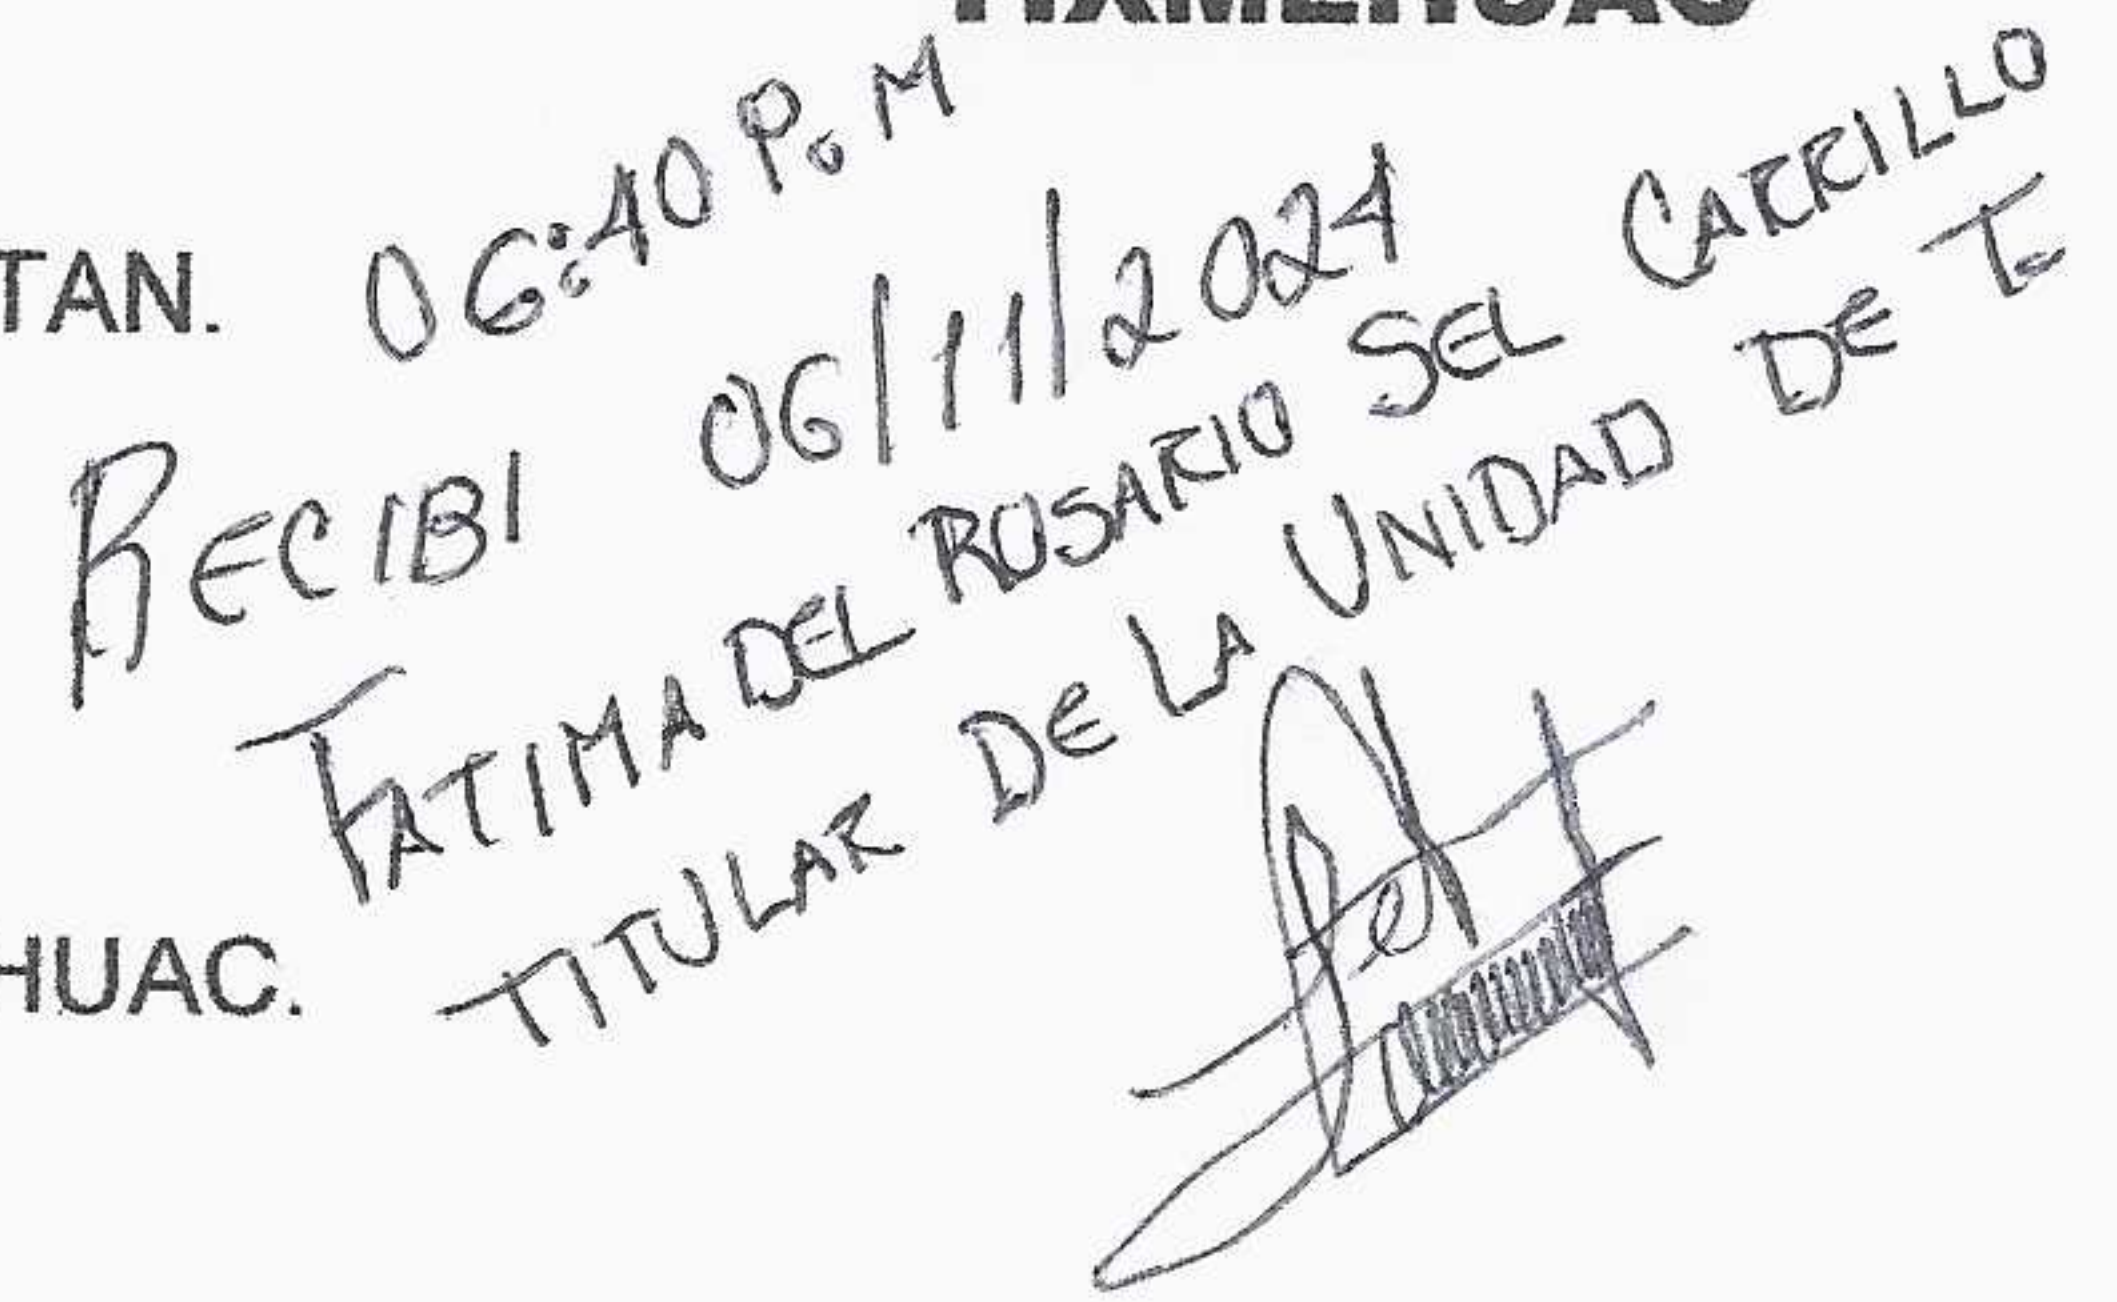 TIXMEHUAC
TAN.
06:40 P.M
RECIBI 06/11/2024
FATIMA DEL ROSARIO SEL CARRILLO
TITULAR DE LA UNIDAD DE T.
HUAC.